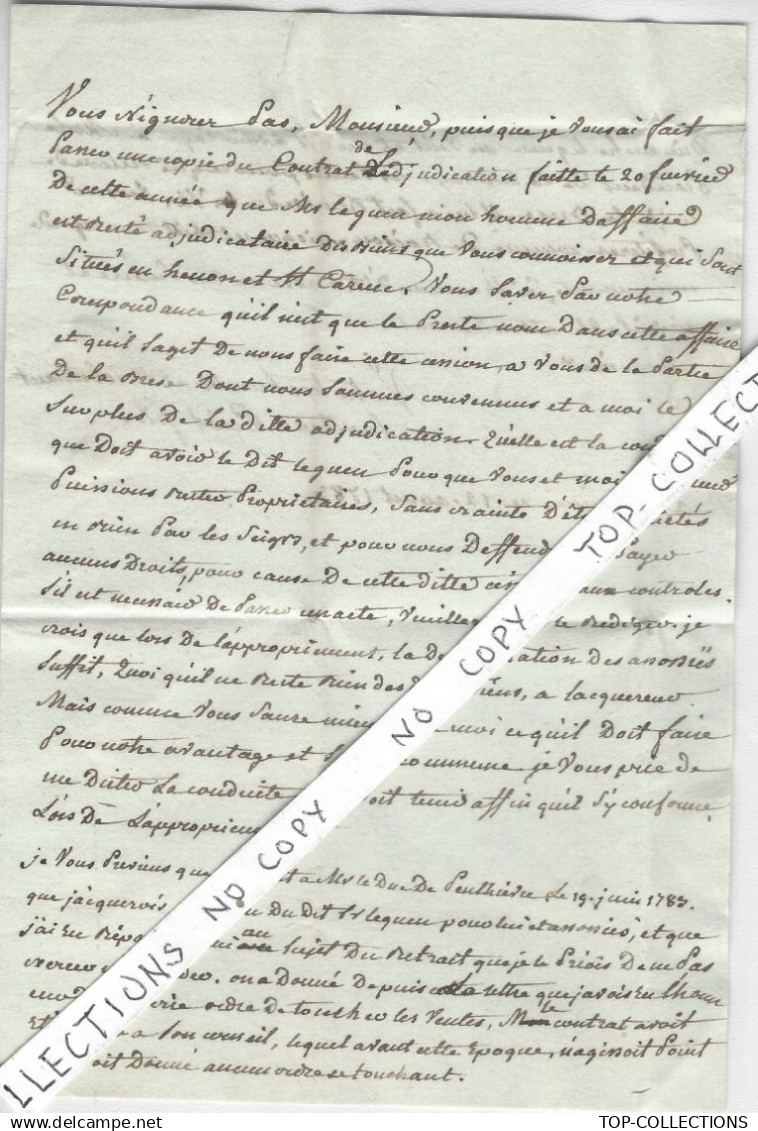 Vous N'ignorez Pas, Monsieur, puisque je Vous ai fait
Passer une copie du Contrat de L'adjudication faitte le 20 fevrier
De cette année que Mr lequeu mon homme D'affaire
est resté adjudicataire Des biens que Vous connoissez et qui Sont
Situés en henon et St Careuc. Vous Savez Par notre
Corespondance qu'il n'est que le Preste nom Dans cette affaire
et qu'il S'agit De nous faire cette cession, a Vous de la Partie
De la Dont nous Sommes convenus et a moi le
Surplus De la ditte adjudication. Quelle est la
que Doit avoir le Dit lequeu Pour que Vous et moi
Puissions rester Proprietaires, Sans crainte D'être
en rien Par les Seigrs, et pour nous Deffendre Payer
aucuns Droits, pour cause De cette ditte aux controles.
S'il est necessaire De Passer un acte, Veuillez le rediger. je
crois que lors De l'appropriement, la des associés
Suffit, Quoi qu'il ne reste rien des biens, a l'acquereur.
Mais comme Vous Savez mieux moi ce qu'il Doit faire
Pour notre avantage et commune je Vous prie de
me Dicter La conduite Doit tenir affin qu'il S'y conforme
Lors De L'appropriement
je Vous Previens que a Mr le Duc De Penthievre Le 19. juin 1783.
que j'acquerois Du dit Sr lequeu pour lui et associés, et que
j'ai Eu au Sujet Du Retrait que je le Priois De ne Pas
exercer on a Donné Depuis la lettre que j'avois Eu l'honneur
ordre de toucher les Ventes, Le contrat avoit
Eté a Son conseil, lequel avant cette Epoque, n'agissoit Point
Donné aucun ordre Se touchant.
LLECTIONS NO COPY NO COPY TOP-COLLECT
TOP-COLLECTIONS